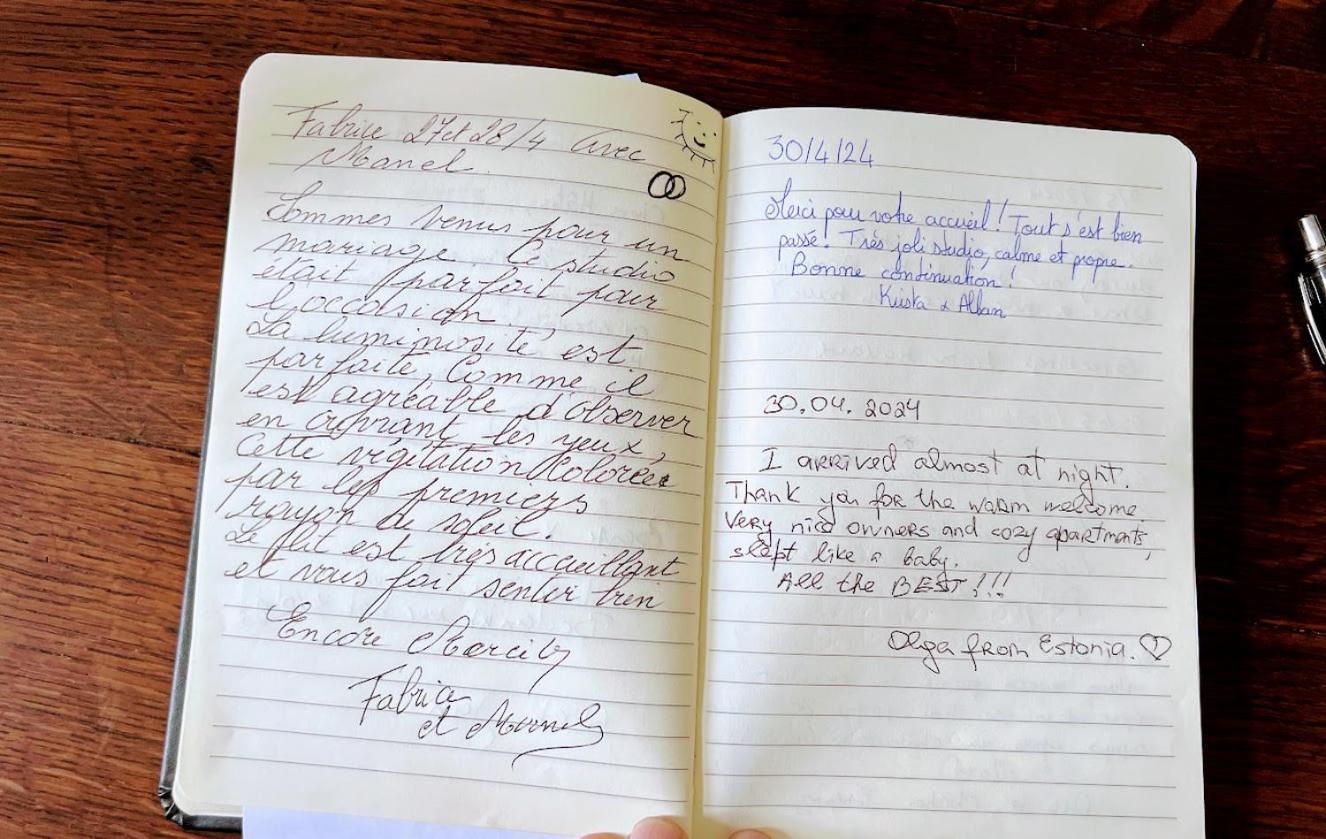 Fabrice 27 et 28/4 avec
Manel.
Sommes venus pour un
mariage. Le studio
était parfait pour
l'occasion.
La luminosité est
parfaite, Comme il
est agréable d'observer
en ouvrant les yeux,
Cette végétation colorée
par les premiers
rayon du soleil.
Le lit est très accueillant
et vous fait sentir bien
Encore Merci
Fabrice
et Manel
30/4/24
Merci pour votre accueil! Tout s'est bien
passé! Très joli studio, calme et propre.
Bonne continuation!
& Alban
30.04. 2024
I arrived almost at night.
Thank you for the warm welcome
Very nice owners and cozy apartments,
slept like a baby.
All the BEST!!!
Olga from Estonia.